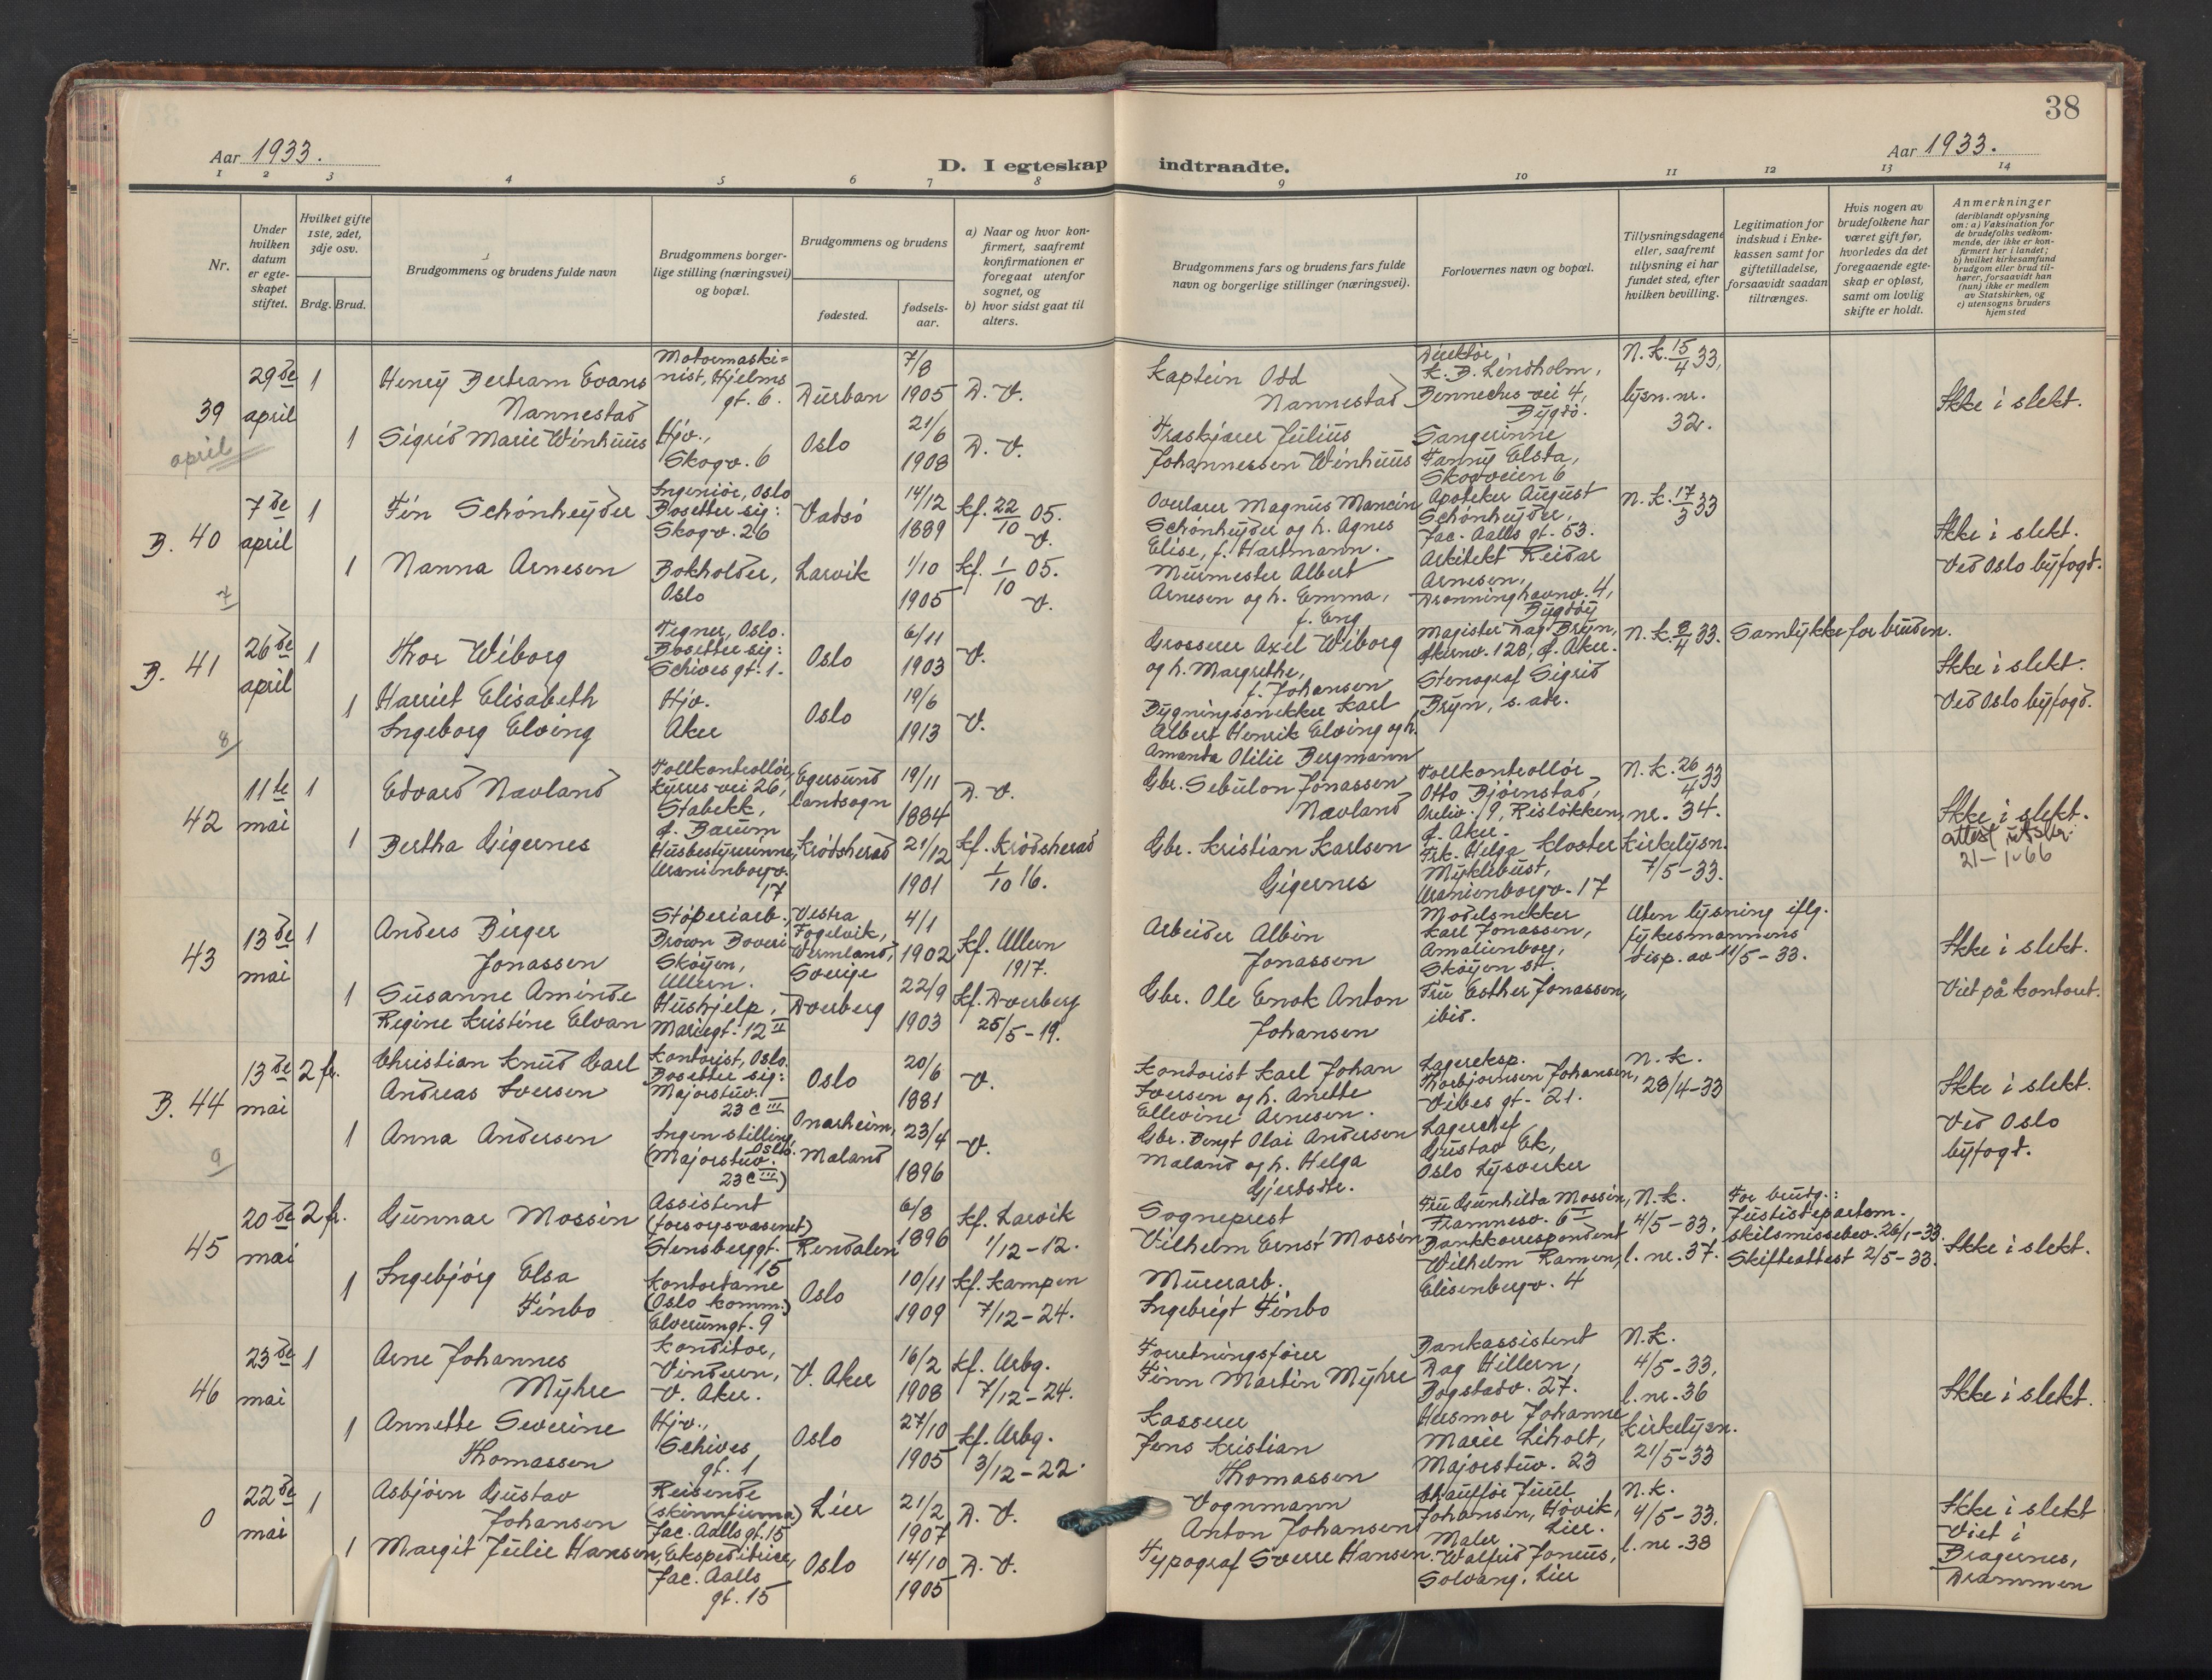 38
Aar 1933.
D. I egteskap indtraadte.
Aar 1933.
1 2 3 4 5 6 7 8 9 10 11 12 13 14
Nr.
Under
hvilken
datum
er egte-
skapet
stiftet.
Hvilket gifte
1ste, 2det,
3dje osv.
Brdg. Brud.
Brudgommens og brudens fulde navn
Brudgommens borger-
lige stilling (næringsvei)
og bopæl.
Brudgommens og brudens
fødested.
fødsels-
aar.
a) Naar og hvor kon-
firmert, saafremt
konfirmationen er
foregaat utenfor
sognet, og
b) hvor sidst gaat til
alters.
Brudgommens fars og brudens fars fulde
navn og borgerlige stillinger (næringsvei).
Forlovernes navn og bopæl.
Tillysningsdagene
eller, saafremt
tillysning ei har
fundet sted, efter
hvilken bevilling.
Legitimation for
indskud i Enke-
kassen samt for
giftetilladelse,
forsaavidt saadan
tiltrænges.
Hvis nogen av
brudefolkene har
været gift før,
hvorledes da det
foregaaende egte-
skap er opløst,
samt om lovlig
skifte er holdt.
Anmerkninger
(deriblandt oplysning
om: a) Vaksination for
de brudefolks vedkom-
mende, der ikke er kon-
firmert her i landet;
b) hvilket kirkesamfund
brudgom eller brud til-
hører, forsaavidt han
(hun) ikke er medlem
av Statskirken, og
c) utensogns bruders
hjemsted
39
april
29de
april
1
Henry Bertram Evans
Nannestad
Motormaski=
nist, Hjelms
gt. 6.
Durban
7/8
1905
D. V.
Kaptein Odd
Nannestad
Direktør
K. B. Lindholm,
Benneches vei 4,
Bygdø.
N. k. 15/4 33,
lysn. nr.
32.
Ikke i slekt.
1
Sigrid Marie Winhuus
Hjv.,
Skogv. 6
Oslo
21/6
1908
D. V.
Træskjærer Julius
Johannessen Winhuus
Sangerinne
Fanny Elsta,
Skogveien 6
B. 40
7
7de
april
1
Finn Schønheyder
Ingeniør, Oslo
Bosetter sig:
Skogv. 26
Vadsø
14/12
1889
kf. 22/10 05.
V.
Overlærer Magnus
Schønheyder og h. Agnes
Elise, f. Hartmann.
Apoteker August
Schønheyder,
Jac. Aalls gt. 53.
N. k. 17/3 33
Ikke i slekt.
Ved Oslo byfogd.
1
Nanna Arnesen
Bokholder,
Oslo
Larvik
1/10
1905
kf. 1/10 05.
V.
Murmester Albert
Arnesen og h. Emma,
f. Eng
Arkitekt Reidar
Arnesen,
Dronninghavnv. 4,
Bygdøy
B. 41
8
26de
april
1
Thor Wiborg
Tegner, Oslo.
Bosetter sig:
Schives gt. 1.
Oslo
6/11
1903
V.
Grosserer Axel Wiborg
og h. Margrethe,
f. Johansen
Magister Dag Bryn,
Akersv. 128, V. Aker.
N. k. 8/4 33.
Samtykke for bruden.
Ikke i slekt.
Ved Oslo byfogd.
1
Harriet Elisabeth
Ingeborg Elving
Hjv.
Aker
Oslo
19/6
1913
V.
Bygningssnekker Karl
Albert Henrik Elving og h.
Amanda Otilie Bergmann
Stenograf Sigrid
Bryn, s. adr.
42
11te
mai
1
Edvard Nævland
Tollkontrollør,
Kyrres vei 26,
Stabekk,
V. Bærum
Egersund
landsogn
19/11
1884
D. V.
Gbr. Sebulon Jonassen
Nævland
Tollkontrollør
Otto Bjørnstad,
Oreliv. 19, Risløkken,
V. Aker.
N. k. 26/4 33
nr. 34.
Ikke i slekt.
attest utskr.
21-1-66
1
Bertha Gigernes
Husbestyrerinne,
Uranienborgv.
17
Krødsherad
21/12
1901
kf. Krødsherad
1/10 16.
Gbr. Kristian Karlsen
Gigernes
Frk. Helga Kloster
Myklebust,
Uranienborgv. 17
Kirkelysn.
7/5-33.
43
13de
mai
1
Anders Birger
Jonassen
Støperiarb.,
Brown Boveri
Skøyen,
Ullern.
Vestra
Fogelvik,
Wermland,
Sverige
4/1
1902
kf. Ullern
1917.
Arbeider Albin
Jonassen
Modelsnekker
Karl Jonassen,
Amalienborg,
Skøyen st.
Uten lysning iflg.
fylkesmannens
disp. av 11/5-33.
Ikke i slekt.
Viet på kontoret.
1
Susanne Aminde
Regine Kristine Elvan
Hushjelp,
Mariegt. 12 II
Dverberg
22/9
1903
kf. Dverberg
25/5-19.
Gbr. Ole Enok Anton
Johansen
Fru Esther Jonassen,
ibid.
B. 44
9
13de
mai
2 fr.
Christian Knud Carl
Andreas Iversen
Kontorist, Oslo.
Bosetter sig:
Majorstuv.
23 c III
Oslo
20/6
1881
V.
Kontorist Karl Johan
Iversen og h. Anette
Ellevine Arnesen.
Lagereksp.
Thorbjørnsen Johansen,
Vibes gt. 21.
N. k.
28/4-33
Ikke i slekt.
Ved Oslo
byfogd.
1
Anna Andersen
Ingen stilling,
Oslo.
(Majorstuv.
23 c III)
Onarheim,
Maland
23/4
1896
V.
Gbr. Bengt Olai Andersen
Maland og h. Helga
Gjertsdtr.
Lagerchef
Gustav Ek,
Oslo Lysverker
45
20de
mai
2 fr.
Gunnar Mossin
Assistent
(forsorgsvæsenet)
Stensberggt.
15
Rendalen
6/8
1896
kf. Larvik
1/12-12.
Sogneprest
Vilhelm Ernst Mossin
Fru Gunhilda Mossin,
Framnesv. 6 I
N. k.
4/5-33.
l. nr. 37.
For brudg.:
Justisdepartem.
skilsmissebev. 26/1-33.
Skifteattest 2/5-33.
Ikke i slekt.
1
Ingebjørg Elsa
Finbo
Kontordame
(Oslo komm.)
Elverumgt. 9
Oslo
10/11
1909
kf. Kampen
7/12-24.
Murerarb.
Ingebrigt Finbo
Bankkorrespondent
Wilhelm Ramen,
Elisenbergv. 4
46
23de
mai
1
Arne Johannes
Myhre
Konditor,
Vinderen,
V. Aker.
V. Aker
16/2
1908
kf. Urbg.
7/12-24.
Forretningsfører
Finn Martin Myhre
Bankassistent
Dag Hillern,
Bogstadv. 27.
N. k.
4/5-33,
l. nr. 36
Ikke i slekt.
1
Annette Severine
Thomassen
Hjv.,
Schives
gt. 1
Oslo
27/10
1905
kf. Urbg.
3/12-22.
Kasserer
Jens Kristian
Thomassen
Husmor Johanne
Marie Liholt,
Majorstuv. 23
Kirkelysn.
21/5-33
0
22de
mai
1
Asbjørn Gustav
Johansen
Reisende
(skinnfirma)
Jac. Aalls gt. 15
Lier
21/2
1907
D. V.
Vognmann
Anton Johansen
Chauffør Juul
Johansen, Høvik,
Lier.
N. k.
4/5-33.
l. nr. 38
Ikke i slekt
Viet i
Bragernes,
Drammen
1
Margit Julie Hansen,
Ekspeditrice,
Jac. Aalls
gt. 15
Oslo
14/10
1905
D. V.
Typograf Sverre Hansen.
Maler
Walfrid Joneus,
Solvang, Lier